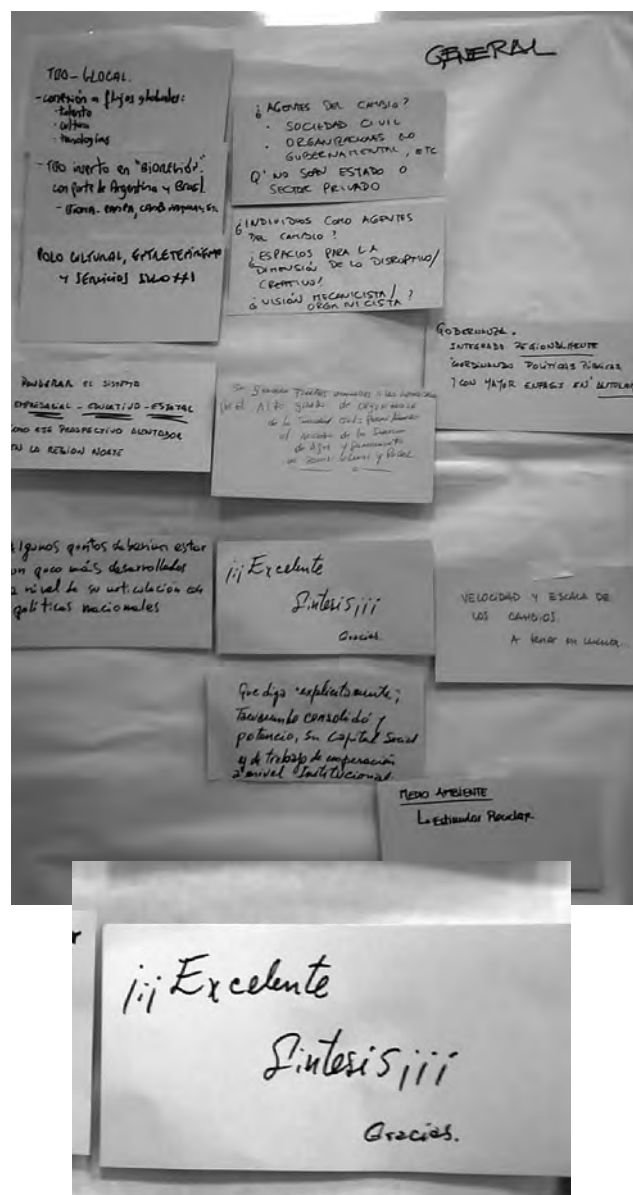 GENERAL
TBO-GLOCAL.
- conexión a flujos globales:
- talento
- cultura
- tecnologías
- TBO inserto en "BIOREGIÓN".
con parte de Argentina y Brasil
- BIOMA - PAMPA, CAMB.
POLO CULTURAL, ENTRETENIMIENTO
Y SERVICIOS SIGLO XXI
¿AGENTES DEL CAMBIO?
· SOCIEDAD CIVIL
· ORGANIZACIONES NO
GUBERNAMENTAL, ETC
Q' NO SEAN ESTADO O
SECTOR PRIVADO
¿INDIVIDUOS COMO AGENTES
DEL CAMBIO?
¿ESPACIOS PARA LA
DIMENSIÓN DE LO DISRUPTIVO/
CREATIVO?
¿VISIÓN MECANICISTA/
ORGANICISTA?
GOBERNANZA.
INTEGRADO REGIONALMENTE
COORDINANDO POLÍTICAS PÚBLICAS
Y CON MAYOR ENFASIS EN
PONDERAR EL SISTEMA
EMPRESARIAL - EDUCATIVO - ESTATAL
COMO EJE PROSPECTIVO ALENTADOR
EN LA REGION NORTE
el Alto grado de
de la
de la
de Agua y Saneamiento
en zonas urbana y Rural
Algunos puntos deberían estar
un poco más desarrollados
a nivel de su articulación con
políticas nacionales
¡¡¡Excelente
Síntesis¡¡¡
Gracias
VELOCIDAD Y ESCALA DE
LOS CAMBIOS.
A tener en cuenta...
Que diga explicitamente;
Tacuarembo consolidó y
potencio, su Capital Social
y de trabajo de cooperación
a nivel Institucional.
MEDIO AMBIENTE
Estimular Reciclar.
¡¡¡Excelente
Síntesis¡¡¡
Gracias.